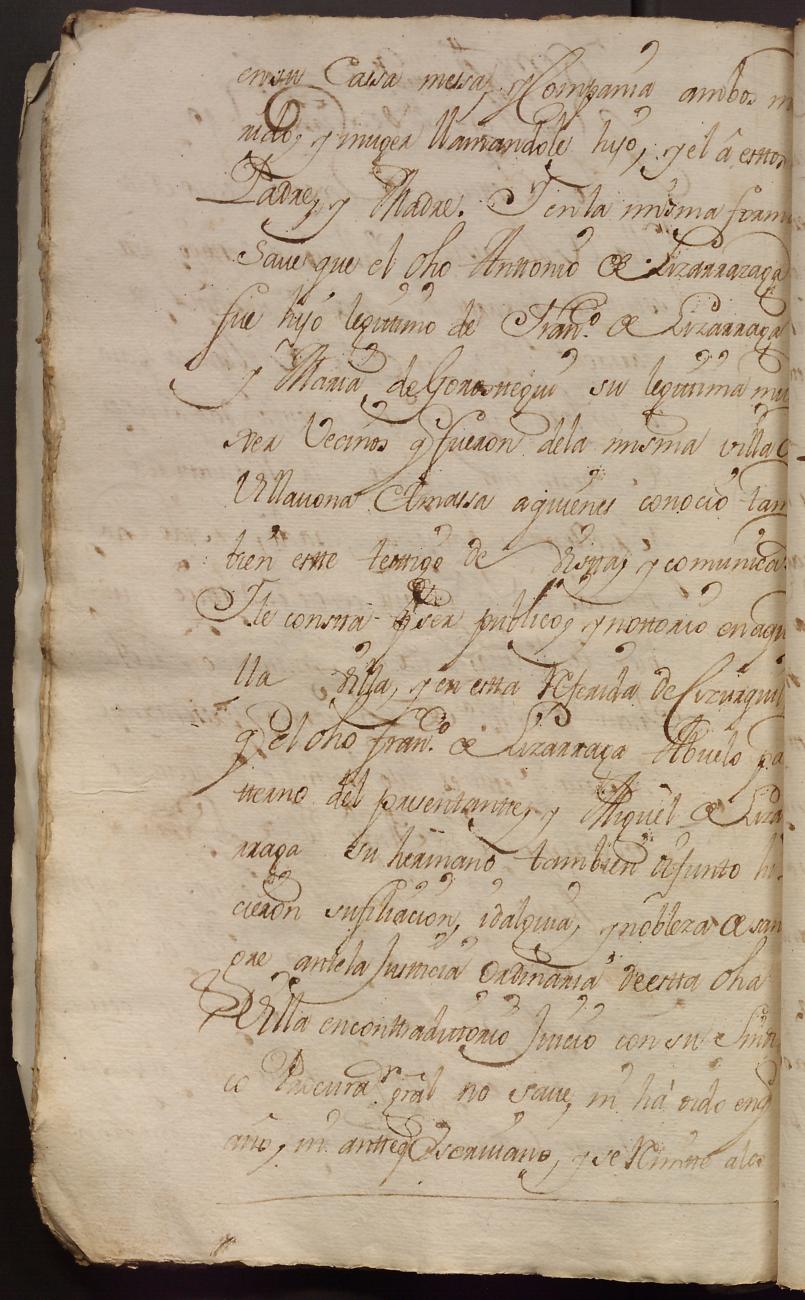 en su Cassa messa, y Compania ambos m
rido, y muger llamandole hijo, y el â esttos
Padre, y Madre. Y en la misma forma
Save que el dho Anttonio de Lizarrazaga
fue hijo legitimo de Fran.co de Lizarraga
y Maria de Gorosttegui su legitima mu
xer Vecinos q fueron dela misma villa d
Villavona Amassa a quienes conocio tam
bien estte testtigo de vistta, y comunica
Y le constta q ser publico, y nottorio en aque
lla Villa, y en estta Referida de Cizurquil
q el dho fran.co de Lizarraga Abuelo pa
tterno del presentantte, y Miguel de Liza
rraga su hermano tambien difunto hi
cieron su filiacion, idalguia, y nobleza de san
gre antela Justticia Ordinaria de estta dha
Villa en conttradittorio Juicio con su Sindi
co Procurad.r gral no save, ni ha oido en q
año, ni antte q Escrivano, y se Rimitte a los